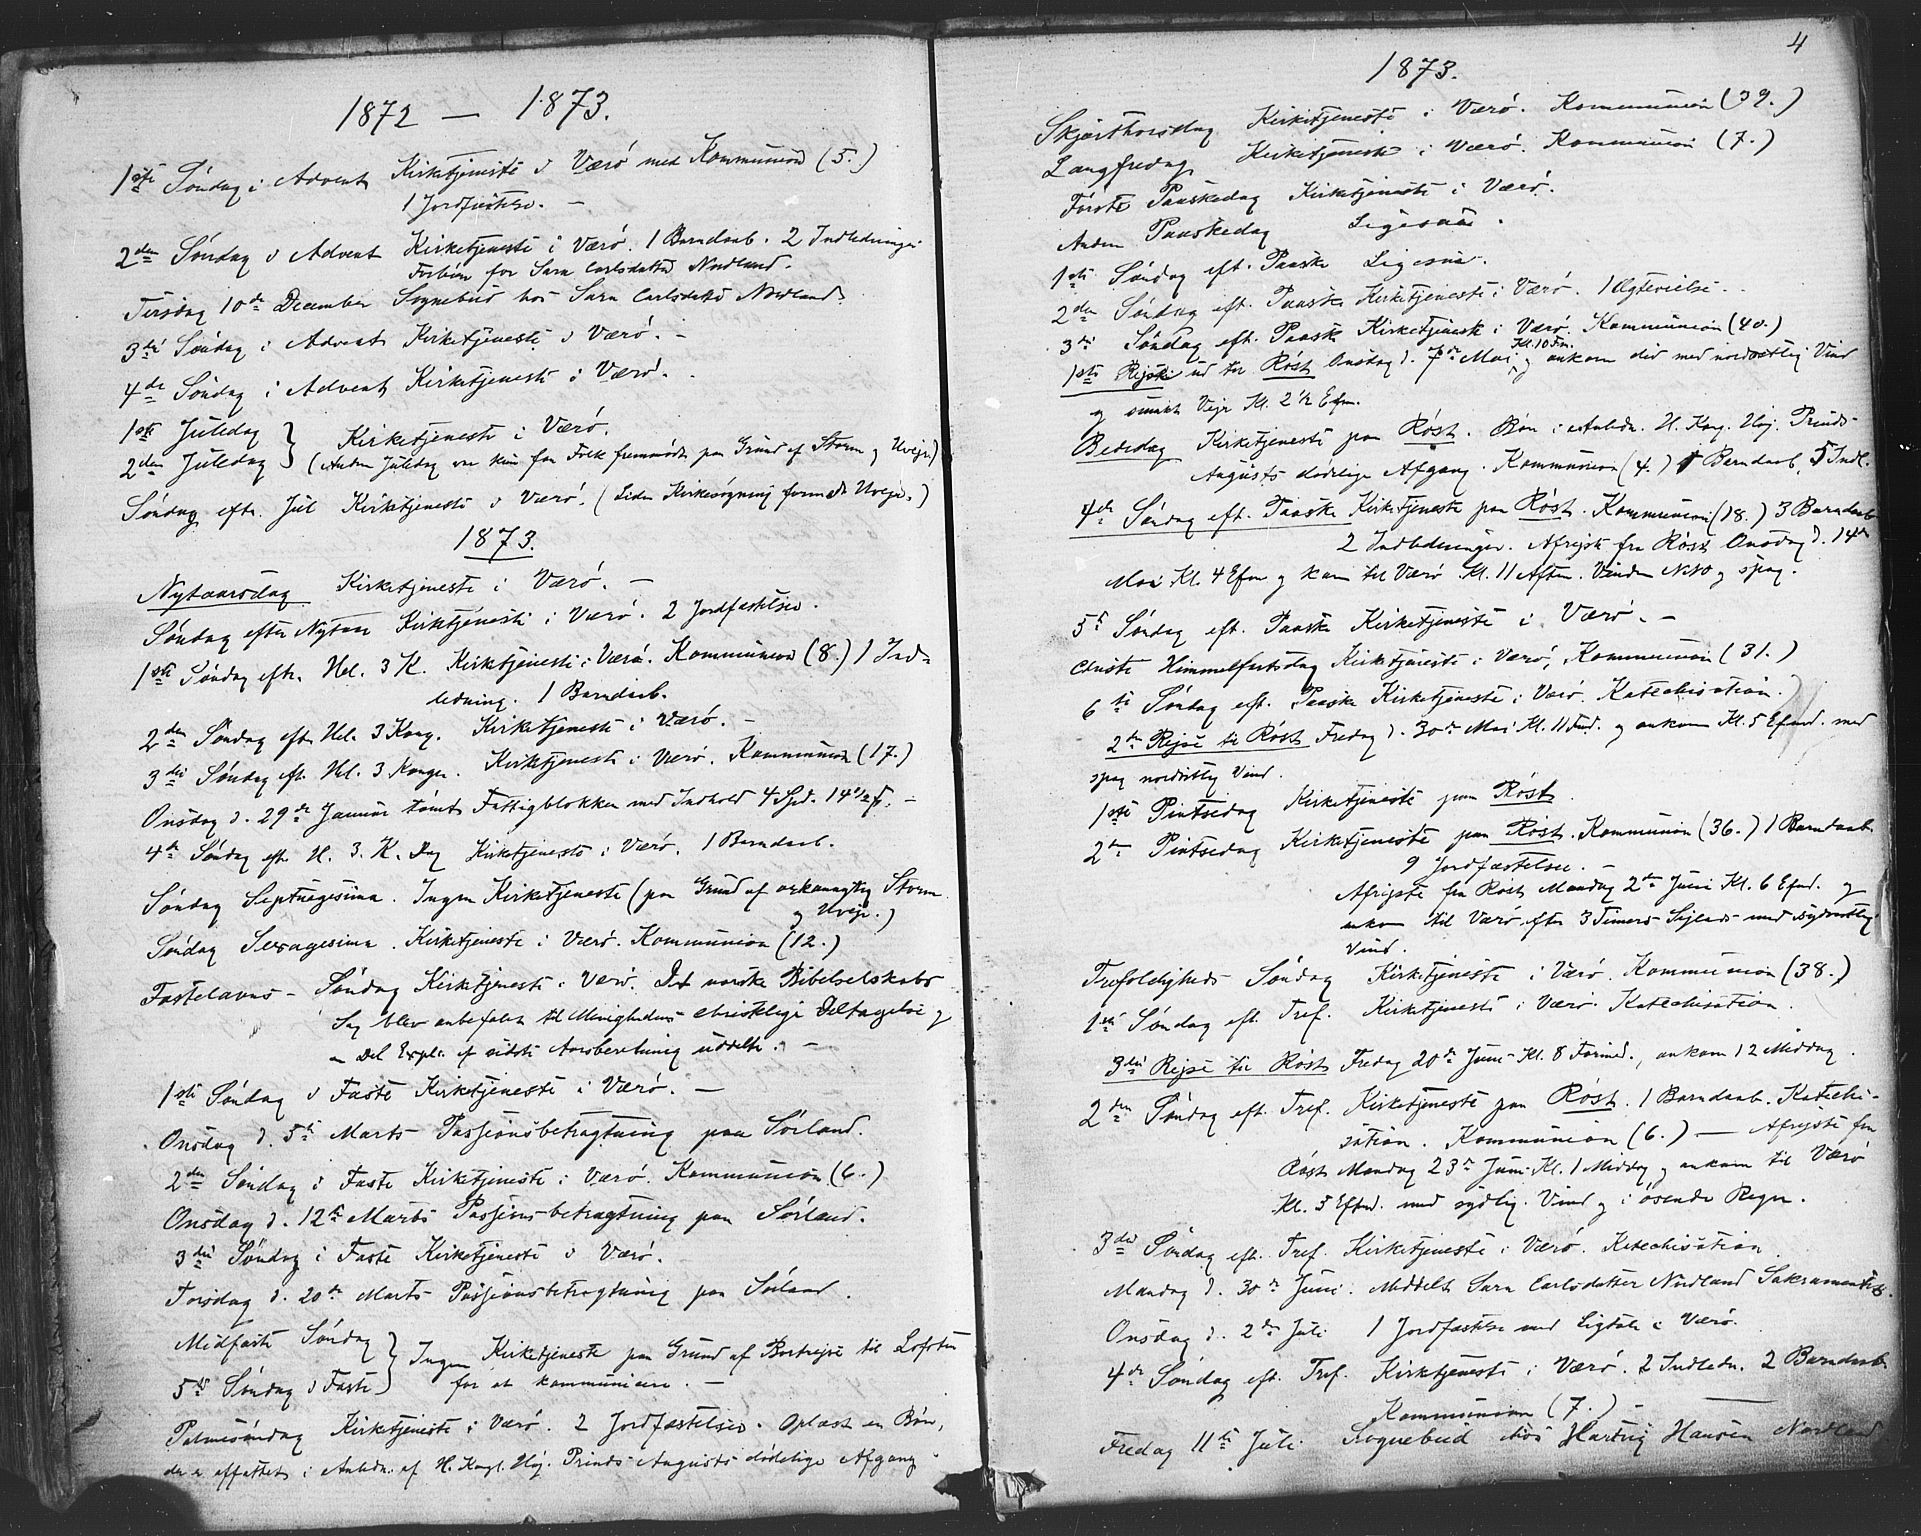 1872 — 1873.
1ste Søndag i Advent Kirketjeneste i Værø med Kommunion (5.)
1 Jordfæstelse. —
2den Søndag i Advent Kirketjeneste i Værø. 1 Barndaab. 2 Indledninger
Forbøn for Sara Carlsdatter Nordland.
Tirsdag 10de December Sognebud hos Sara Carlsdatter Nordland.
3die Søndag i Advent Kirketjeneste i Værø. —
4de Søndag i Advent Kirketjeneste i Værø. —
1ste Juledag } Kirketjeneste i Værø.
2den Juledag } (Anden Juledag var kun faa Folk fremmødt paa Grund af Storm og Uveir.)
Søndag eftr. Jul Kirketjeneste i Værø. (Liden Kirkesøgning formedelst Uveir.)
1873.
Nytaarsdag Kirketjeneste i Værø. —
Søndag efter Nytaar Kirketjeneste i Værø. 2 Jordfæstelser.
1ste Søndag eftr. Hel. 3 K. Kirketjeneste i Værø. Kommunion (8.) 1 Ind-
ledning. 1 Barndaab.
2den Søndag eftr. Hel. 3 Kong. Kirketjeneste i Værø. —
3die Søndag eft. Hel. 3 Konger. Kirketjeneste i Værø. Kommunion (17.)
Onsdag d. 29de Januar tømt Fattigblokken med Indhold 4 Spd. 14 1/2 ß. —
4de Søndag eft. H. 3. K. Dag Kirketjeneste i Værø. 1 Barndaab.
Søndag Septuagesima. Ingen Kirketjeneste (paa Grund af orkanagtig Storm
og Uveir.)
Søndag Sexagesima. Kirketjeneste i Værø. Kommunion (12.)
Fastelavns-Søndag Kirketjeneste i Værø. Det norske Bibelselskabs
Sag blev anbefalet til Menighedens christelige Deltagelse og
en Del Expl. af sidste Aarsberetning uddelte. —
1ste Søndag i Faste Kirketjeneste i Værø. —
Onsdag d. 5te Marts Passionsbetragtning paa Sørland.
2den Søndag i Faste Kirketjeneste i Værø. Kommunion (6.)
Onsdag d. 12te Marts Passionsbetragtning paa Sørland.
3die Søndag i Faste Kirketjeneste i Værø.
Torsdag d. 20de Marts Passionsbetragtning paa Sørland.
Midfaste Søndag } Ingen Kirketjeneste paa Grund af Bortreise til Lofoten
5te Søndag i Faste } for at kommunicere. —
Palmesøndag Kirketjeneste i Værø. 2 Jordfæstelser. Oplæst en Bøn,
der er affattet i Anledn. af H. Kngl. Høj. Prinds Augusts dødelige Afgang
4
1873.
Skjærthorsdag Kirketjeneste i Værø. Kommunion (39.)
Langfredag Kirketjeneste i Værø. Kommunion (7.)
Første Paaskedag Kirketjeneste i Værø.
Anden Paaskedag Ligesaa.
1ste Søndag eft. Paaske Ligesaa.
2den Søndag eft. Paaske Kirketjeneste i Værø. 1 Ægtevielse.
3die Søndag eft. Paaske Kirketjeneste i Værø. Kommunion (40.)
1ste Rejse ud til Røst Onsdag d. 7de Mai Kl. 10 Fm. og ankom did med nordostlig Vind
og smukt Vejr Kl. 2 1/2 Efm.
Bededag Kirketjeneste paa Røst. Bøn i Anledn. H. Kong. Høj. Prinds
Augusts dødelige Afgang. Kommunion (4.) 1 Barndaab, 5 Indl.
4de Søndag eft. Paaske Kirketjeneste paa Røst. Kommunion (18.) 3 Barndaab
2 Indledninger. Afrejste fra Røst Onsdag d. 14de
Mai Kl. 4 Efm og kom til Værø Kl. 11 Aften. Vinden NNO og spag.
5te Søndag eft. Paaske Kirketjeneste i Værø. —
Christi Himmelfartsdag Kirketjeneste i Værø, Kommunion (31.)
6te Søndag eft. Paaske Kirketjeneste i Værø. Katechisation.
2den Rejse til Røst Fredag d. 30de Mai Kl. 11 Fmd. og ankom Kl. 5 Efmd. med
spag nordostlig Vind.
1ste Pintsedag Kirketjeneste paa Røst.
2den Pintsedag Kirketjeneste paa Røst. Kommunion (36.) 1 Barndaab
9 Jordfæstelser. —
Afrejste fra Røst Mandag 2den Juni Kl. 6 Efmd. og
ankom til Værø efter 3 Timers Sejlads med sydvestlig
Vind.
Trefoldigheds Søndag Kirketjeneste i Værø. Kommunion (38.)
1ste Søndag eft. Tref. Kirketjeneste i Værø. Katechisation.
3die Rejse til Røst Fredag 20de Juni Kl. 8 Formd., ankom 12 Middag.
2den Søndag eft. Tref. Kirketjeneste paa Røst. 1 Barndaab. Katechi-
sation. Kommunion (6.) — Afrejste fra
Røst Mandag 23de Juni Kl. 1 Middag og ankom til Værø
Kl. 5 Eftmd. med sydlig Vind og i øsende Regn.
3die Søndag eft. Tref. Kirketjeneste i Værø. Katechisation.
Mandag d. 30de Juni. Meddelt Sara Carlsdatter Nordland Sakramentet.
Onsdag d. 2den Juli 1 Jordfæstelse med Ligtale i Værø.
4de Søndag eft. Tref. Kirketjeneste i Værø. 2 Indledn. 2 Barndaab
Kommunion (7.) —
Fredag 11te Juli Sognebud hos Hartvig Hansen Nordland